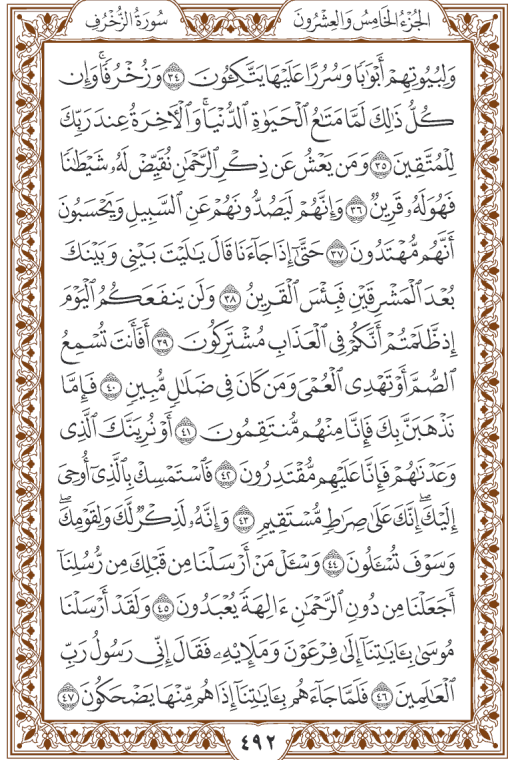 سُورَةُ الزُّخْرُفِ
الجُزْءُ الخَامِسُ وَالعِشْرُونَ
وَلِبُيُوتِهِمْ أَبْوَٰبًا وَسُرُرًا عَلَيْهَا يَتَّكِـُٔونَ ٣٤ وَزُخْرُفًا ۚ وَإِن
كُلُّ ذَٰلِكَ لَمَّا مَتَٰعُ ٱلْحَيَوٰةِ ٱلدُّنْيَا ۚ وَٱلْـَٔاخِرَةُ عِندَ رَبِّكَ
لِلْمُتَّقِينَ ٣٥ وَمَن يَعْشُ عَن ذِكْرِ ٱلرَّحْمَٰنِ نُقَيِّضْ لَهُۥ شَيْطَٰنًا
فَهُوَ لَهُۥ قَرِينٌ ٣٦ وَإِنَّهُمْ لَيَصُدُّونَهُمْ عَنِ ٱلسَّبِيلِ وَيَحْسَبُونَ
أَنَّهُم مُّهْتَدُونَ ٣٧ حَتَّىٰٓ إِذَا جَآءَنَا قَالَ يَٰلَيْتَ بَيْنِى وَبَيْنَكَ
بُعْدَ ٱلْمَشْرِقَيْنِ فَبِئْسَ ٱلْقَرِينُ ٣٨ وَلَن يَنفَعَكُمُ ٱلْيَوْمَ
إِذ ظَّلَمْتُمْ أَنَّكُمْ فِى ٱلْعَذَابِ مُشْتَرِكُونَ ٣٩ أَفَأَنتَ تُسْمِعُ
ٱلصُّمَّ أَوْ تَهْدِى ٱلْعُمْىَ وَمَن كَانَ فِى ضَلَٰلٍ مُّبِينٍ ٤٠ فَإِمَّا
نَذْهَبَنَّ بِكَ فَإِنَّا مِنْهُم مُّنتَقِمُونَ ٤١ أَوْ نُرِيَنَّكَ ٱلَّذِى
وَعَدْنَٰهُمْ فَإِنَّا عَلَيْهِم مُّقْتَدِرُونَ ٤٢ فَٱسْتَمْسِكْ بِٱلَّذِىٓ أُوحِىَ
إِلَيْكَ ۖ إِنَّكَ عَلَىٰ صِرَٰطٍ مُّسْتَقِيمٍ ٤٣ وَإِنَّهُۥ لَذِكْرٌ لَّكَ وَلِقَوْمِكَ ۖ
وَسَوْفَ تُسْـَٔلُونَ ٤٤ وَسْـَٔلْ مَنْ أَرْسَلْنَا مِن قَبْلِكَ مِن رُّسُلِنَآ
أَجَعَلْنَا مِن دُونِ ٱلرَّحْمَٰنِ ءَالِهَةً يُعْبَدُونَ ٤٥ وَلَقَدْ أَرْسَلْنَا
مُوسَىٰ بِـَٔايَٰتِنَآ إِلَىٰ فِرْعَوْنَ وَمَلَإِي۟هِۦ فَقَالَ إِنِّى رَسُولُ رَبِّ
ٱلْعَٰلَمِينَ ٤٦ فَلَمَّا جَآءَهُم بِـَٔايَٰتِنَآ إِذَا هُم مِّنْهَا يَضْحَكُونَ ٤٧
٤٩٢